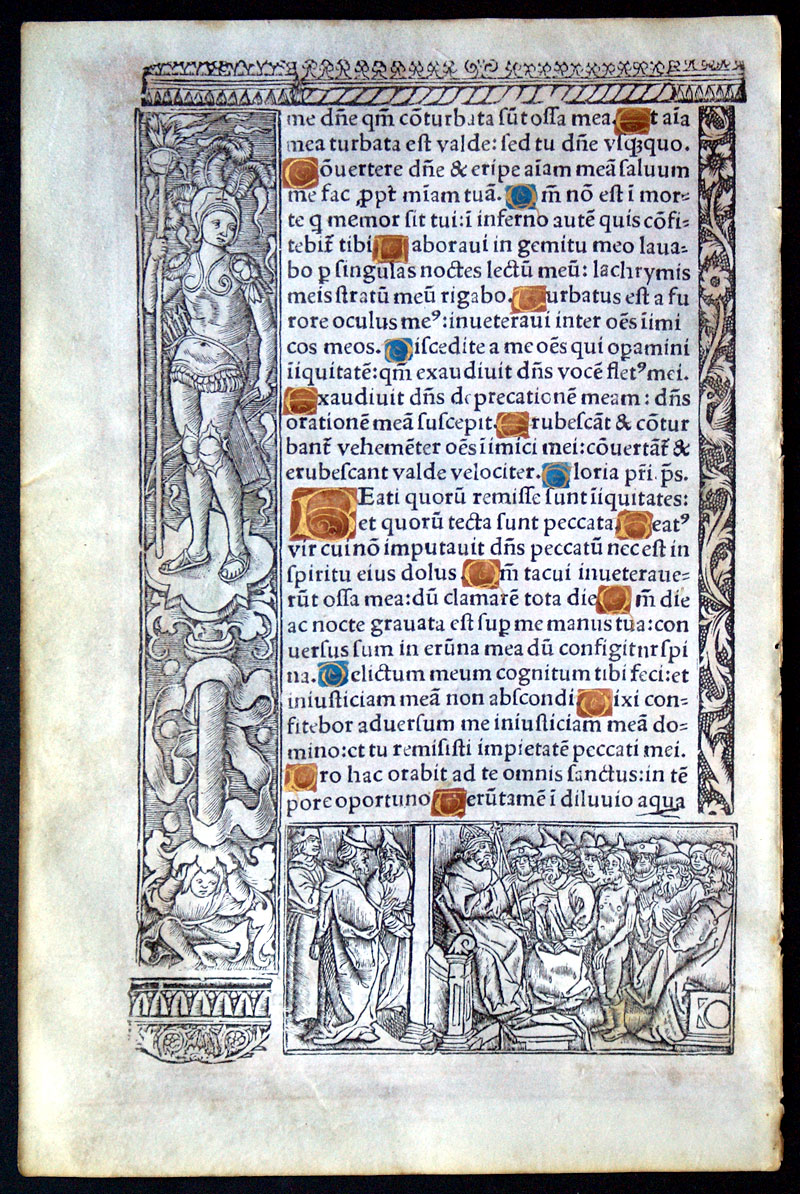 me dn̄e qm̄ cōturbata sūt ossa mea. Et aīa
mea turbata est valde: sed tu dn̄e vsqꝫquo.
Cōuertere dn̄e & eripe aīam meā saluum
me fac ꝓpt̄ mīam tuā. Qm̄ nō est ī mor⸗
te q̄ memor sit tui: ī inferno autē quis cōfi⸗
tebit̄ tibi Laboraui in gemitu meo laua⸗
bo ꝑ singulas noctes lectū meū: lachrymis
meis stratū meū rigabo. Turbatus est a fu
rore oculus meꝰ: inueteraui inter oēs īimi
cos meos. Discedite a me oēs qui oꝑamini
īiquitatē: qm̄ exaudiuit dn̄s vocē fletꝰ mei.
Exaudiuit dn̄s deprecationē meam: dn̄s
orationē meā suscepit. Erubescāt & cōtur
bant̄ vehemēter oēs īimici mei: cōuertāt̄ &
erubescant valde velociter. Gloria pr̄i. p̄s.
BEati quorū remisse sunt īiquitates:
et quorū tecta sunt peccata. Beatꝰ
vir cui nō imputauit dn̄s peccatū nec est in
spiritu eius dolus. Qm̄ tacui inueteraue⸗
rūt ossa mea: dū clamarē tota die Qm̄ die
ac nocte grauata est suꝑ me manus tua: con
uersus sum in erūna mea dū configitnr spi
na. Delictum meum cognitum tibi feci: et
iniusticiam meā non abscondi. Dixi con⸗
fitebor aduersum me iniusticiam meā do⸗
mino: et tu remisisti impietatē peccati mei.
Pro hac orabit ad te omnis sanctus: in tē
pore oportuno Uerūtamē ī diluuio aqua